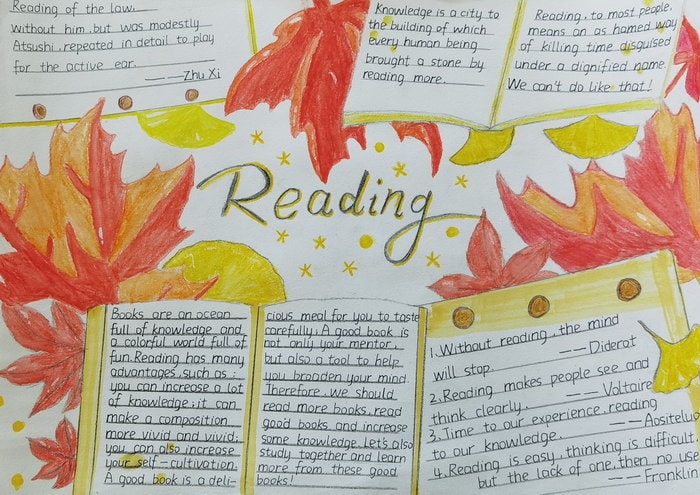 Reading of the law:
without him, but was modestly
Atsushi, repeated in detail to play
for the active ear.
——Zhu Xi
Knowledge is a city to
the building of which
every human being
brought a stone by
reading more.
Reading, to most people,
means an as hamed way
of killing time disguised
under a dignified name.
We can't do like that!
Reading
Books are an ocean
full of knowledge and
a colorful world full of
fun. Reading has many
advantages, such as:
you can increase a lot
of knowledge; it can
make a composition
more vivid and vivid,
you can also increase
your self-cultivation.
A good book is a deli-
cious meal for you to taste
carefully. A good book is
not only your mentor,
but also a tool to help
you broaden your mind.
Therefore, we should
read more books, read
good books and increase
some knowledge. Let's also
study together and learn
more from these good
books!
1. Without reading, the mind
will stop. ——Diderot
2. Reading makes people see and
think clearly. ——Voltaire
3. Time to our experience, reading
to our knowledge. ——Aositelu
4. Reading is easy, thinking is difficult
but the lack of one, then no use
——Franklin